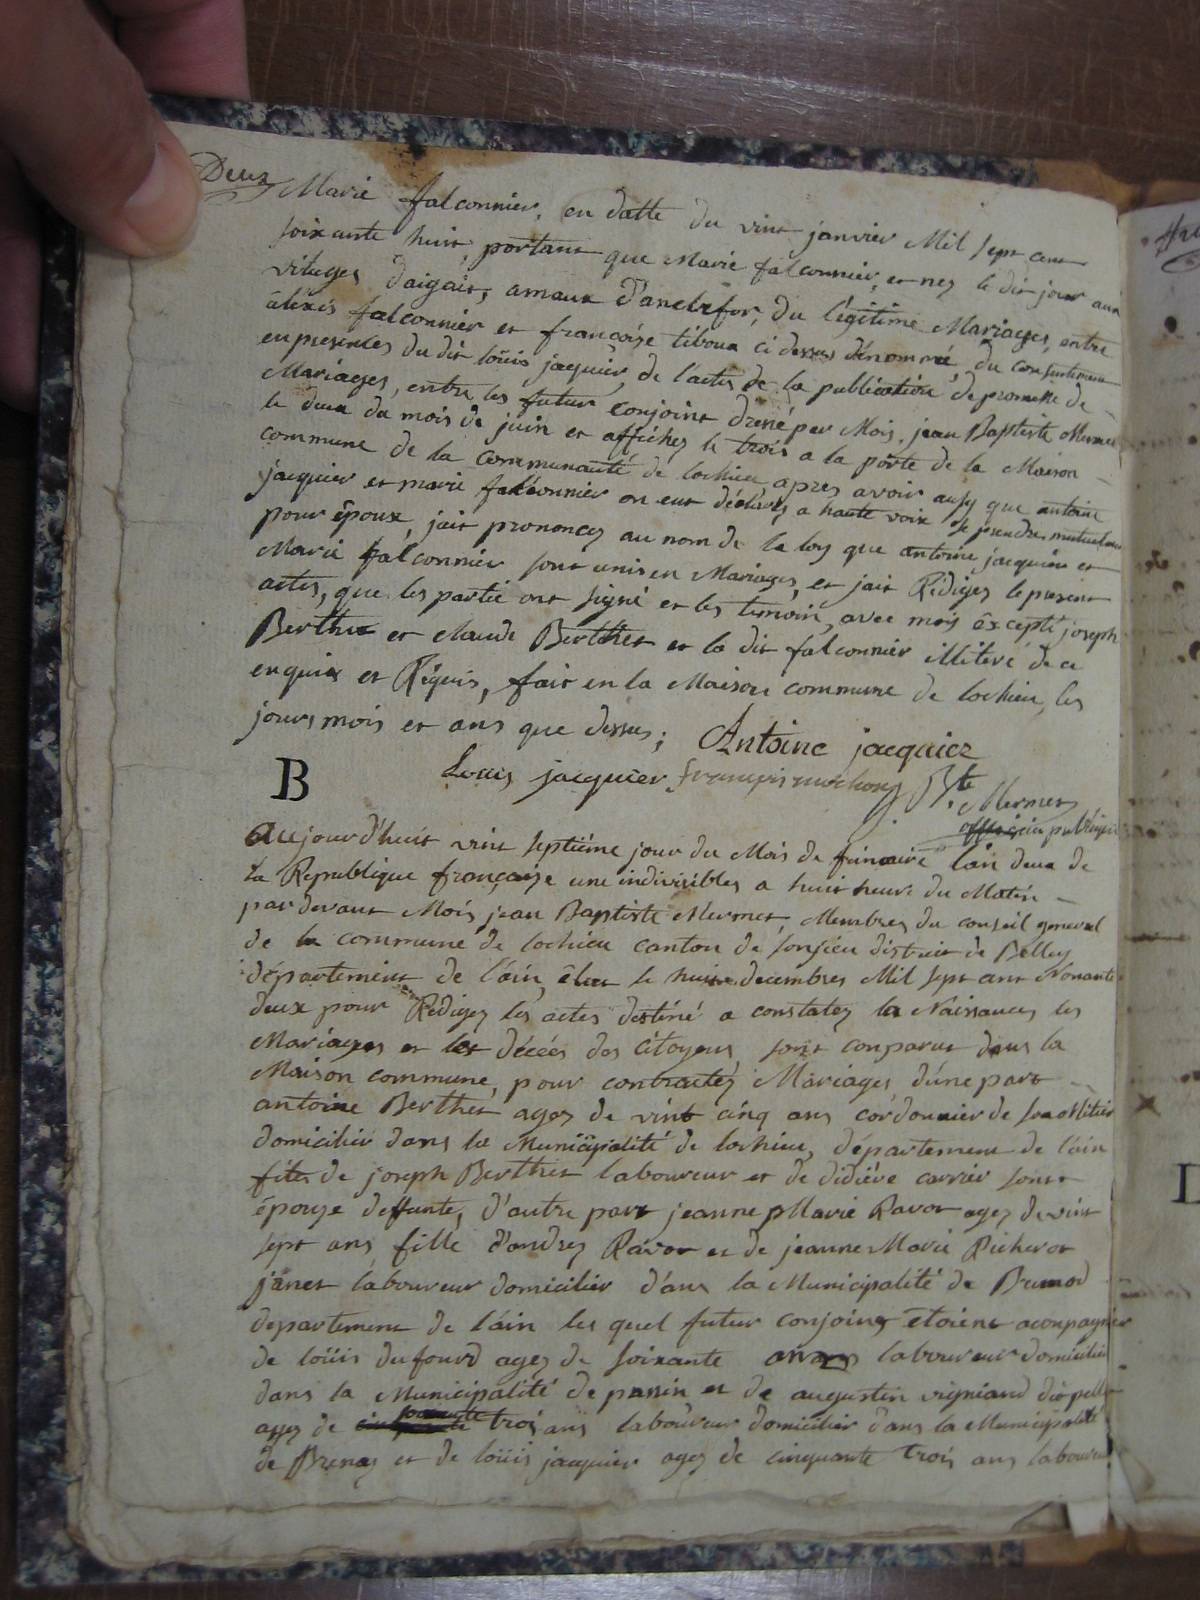 Deux
Marie falconnier, en datte du vint janvier Mil sept cent
soixante huit, portant que Marie falconnier, et nez le dit jour aux
vilages daigait, amaux Dandrefor, du légitime Mariages, entre
alexis falconnier et françoise tiboux ci dessus dénommé, du consentement
en presences du dit loüis jacquier, de l'actes de la publication de promesse de
Mariages, entre les futur conjoint dressé par Mois, jean Baptiste Mermet
le deux du mois de juin et affichez le trois a la porte de la Maison
commune de la communauté de lochieu apres avoir aussy que antoine
jacquier et marie falconnier on eut déclarez a haute voix se prendre mutuellement
pour époux, jait prononcez au nom de la loy que antoine jacquier et
Marie falconnier sont unis en Mariages, et jait Rédigez le present
actes, que les partie ont signé et les temoins, avec mois éxcepté joseph
Berthet et claude Berthet et la dit falconnier illiteré de ce
enquis et Réquis, fait en la Maison commune de lochieu, les
jours mois et ans que dessus;
Antoine jacquiez
Louis jacquier
Bte Mermet
officié publique
B
Aujourd'huit vint septiéme jour du Mois de frimaire l'an deux de
La Republique françaize une indivisibles a huit heure du Matin
pardevant Mois jean Baptiste Mermet, Membres du conseil general
de la commune de lochieu canton de sonjieu district de Belley
département de l'ain, élut le huit decembres Mil sept ans Nonante
deux pour Rédigez les actes destiné a constatez la Naissances les
Mariages et les décées des citoyens, sont conparut dans la
Maison commune, pour contractéz Mariages d'une part
antoine Berthet agez de vint cinq ans cordonnier de son Mitier
domicilier dans la Municipalité de lochieu, département de l'ain
fils de joseph Berthet laboureur et de didiére carrier sont
épouze deffunte, d'autre part jeanne Marie Ravot agez de vint
sept ans fille d'andrez Ravot et de jeanne Marie Richerot
janet laboureur domicilier d'ans la Municipalité de Brenod
departement de l'ain les quel futur conjoint etoient aconpagnier
de loüis dufourd agez de soixante ans laboureur domicilier
dans la Municipalité de passin et de augustin vigniand
agez de soixante trois ans laboureur domicilier dans la Municipalité
de Brenaz et de loüis jacquier agez de cinquante trois ans laboureur